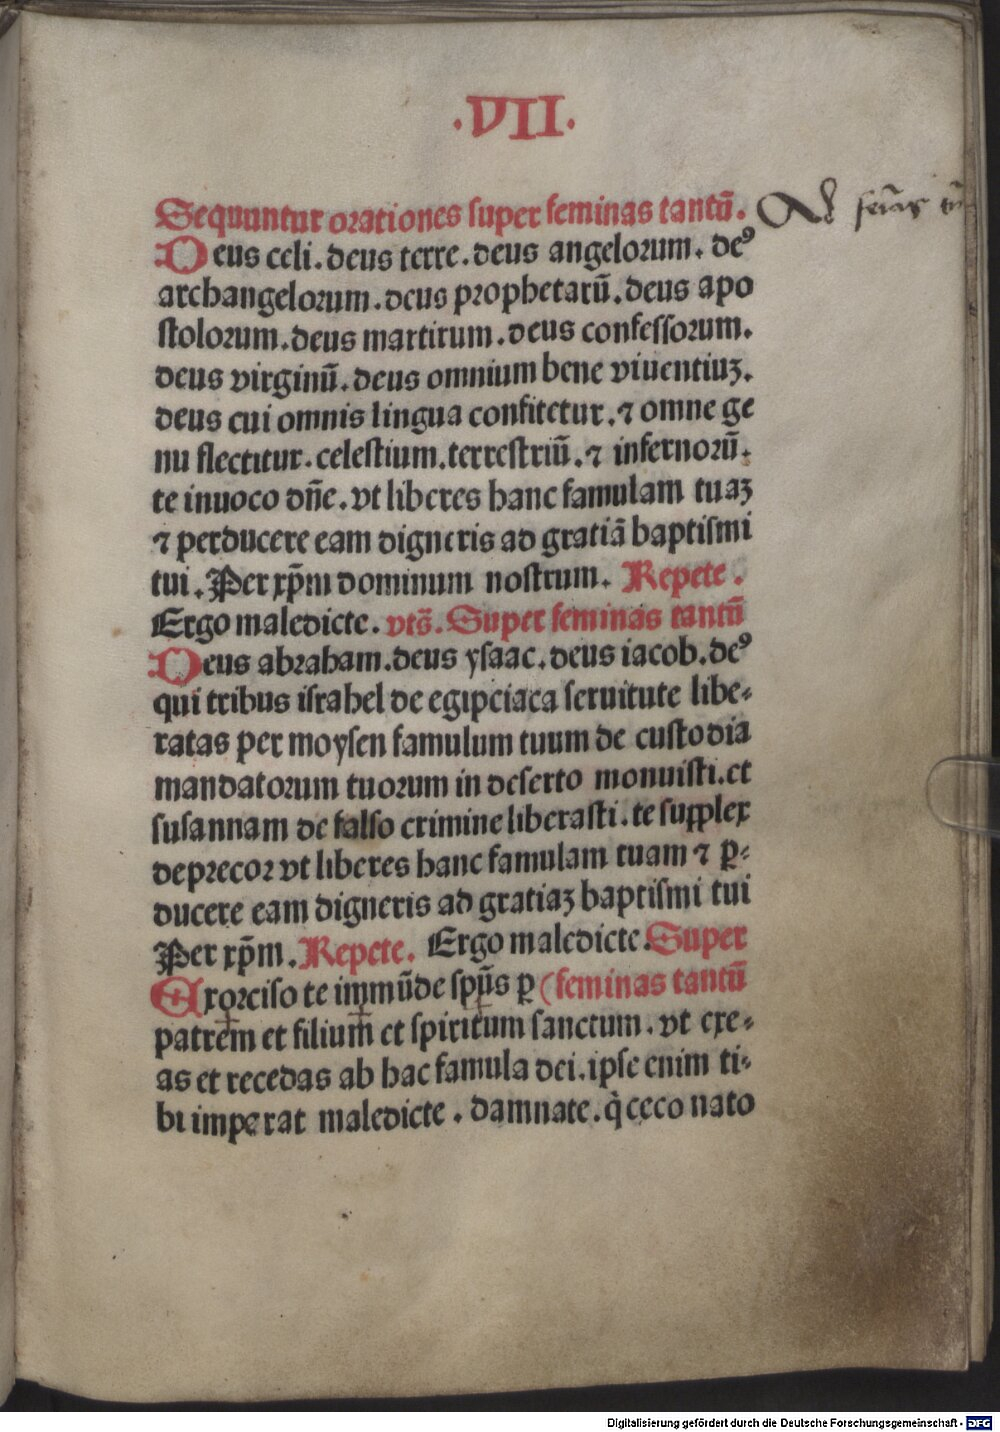 .VII.
Sequuntur orationes super feminas tantū.
Deus celi. deus terre. deus angelorum. deꝰ
archangelorum. deus prophetarū. deus apo
stolorum. deus martirum. deus confessorum.
deus virginū. deus omnium bene viuentiuȝ.
deus cui omnis lingua confitetur. ⁊ omne ge
nu flectitur. celestium. terrestriū. ⁊ infernorū.
te inuoco dn̄e. vt liberes hanc famulam tuaȝ
⁊ perducere eam digneris ad gratiā baptismi
tui. Per xp̄m dominum nostrum. Repete.
Ergo maledicte. vts̄. Super feminas tantū
Deus abraham. deus ysaac. deus iacob. deꝰ
qui tribus israhel de egipciaca seruitute libe-
ratas per moysen famulum tuum de custodia
mandatorum tuorum in deserto monuisti. et
susannam de falso crimine liberasti. te supplex
deprecor vt liberes hanc famulam tuam ⁊ ꝑ-
ducere eam digneris ad gratiaȝ baptismi tui
Per xp̄m. Repete. Ergo maledicte. Super
Exorciso te immūde spūs ꝑ (feminas tantū
patrem et filium et spiritum sanctum. vt exe-
as et recedas ab hac famula dei. ipse enim ti-
bi imperat maledicte. damnate. q̇ ceco nato
Digitalisierung gefördert durch die Deutsche Forschungsgemeinschaft - DFG